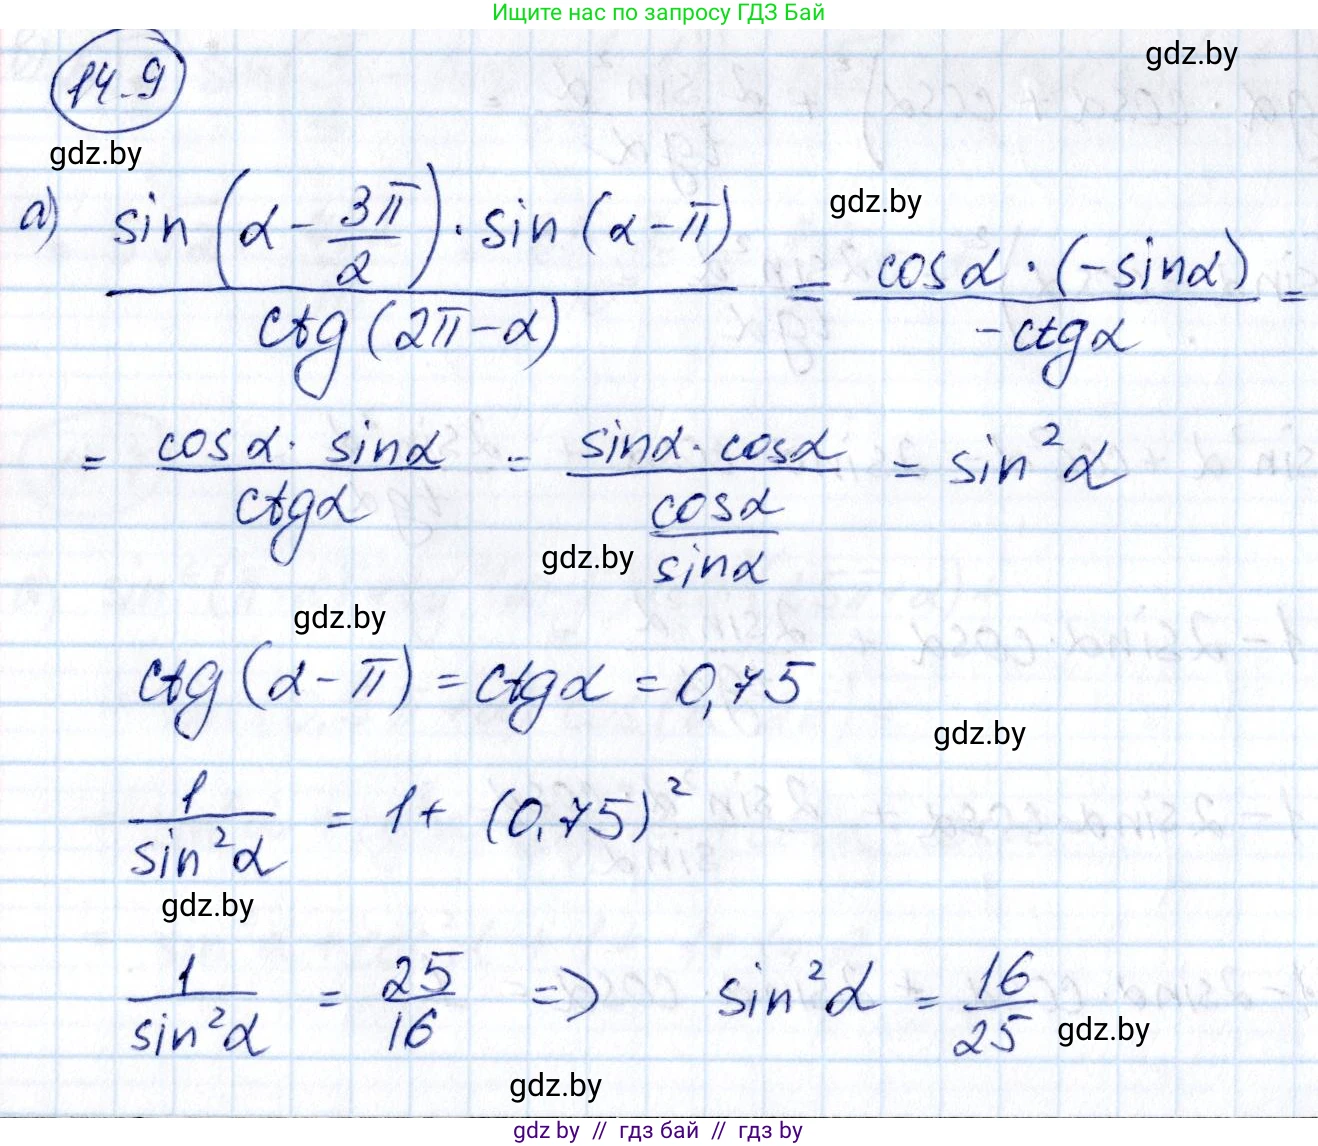 Ищите нас по запросу ГДЗ Бай
14.9
gdz.by
gdz.by
а) sin(α - 3π/2) · sin(α - π) / ctg(2π - α) = cosα · (-sinα) / -ctgα =
gdz.by
= cosα · sinα / ctgα = sinα · cosα / (cosα / sinα) = sin²α
gdz.by
gdz.by
ctg(α - π) = ctgα = 0,75
gdz.by
1 / sin²α = 1 + (0,75)²
gdz.by
1 / sin²α = 25/16 => sin²α = 16/25
gdz.by
gdz.by
gdz by // гдз бай // гдз by